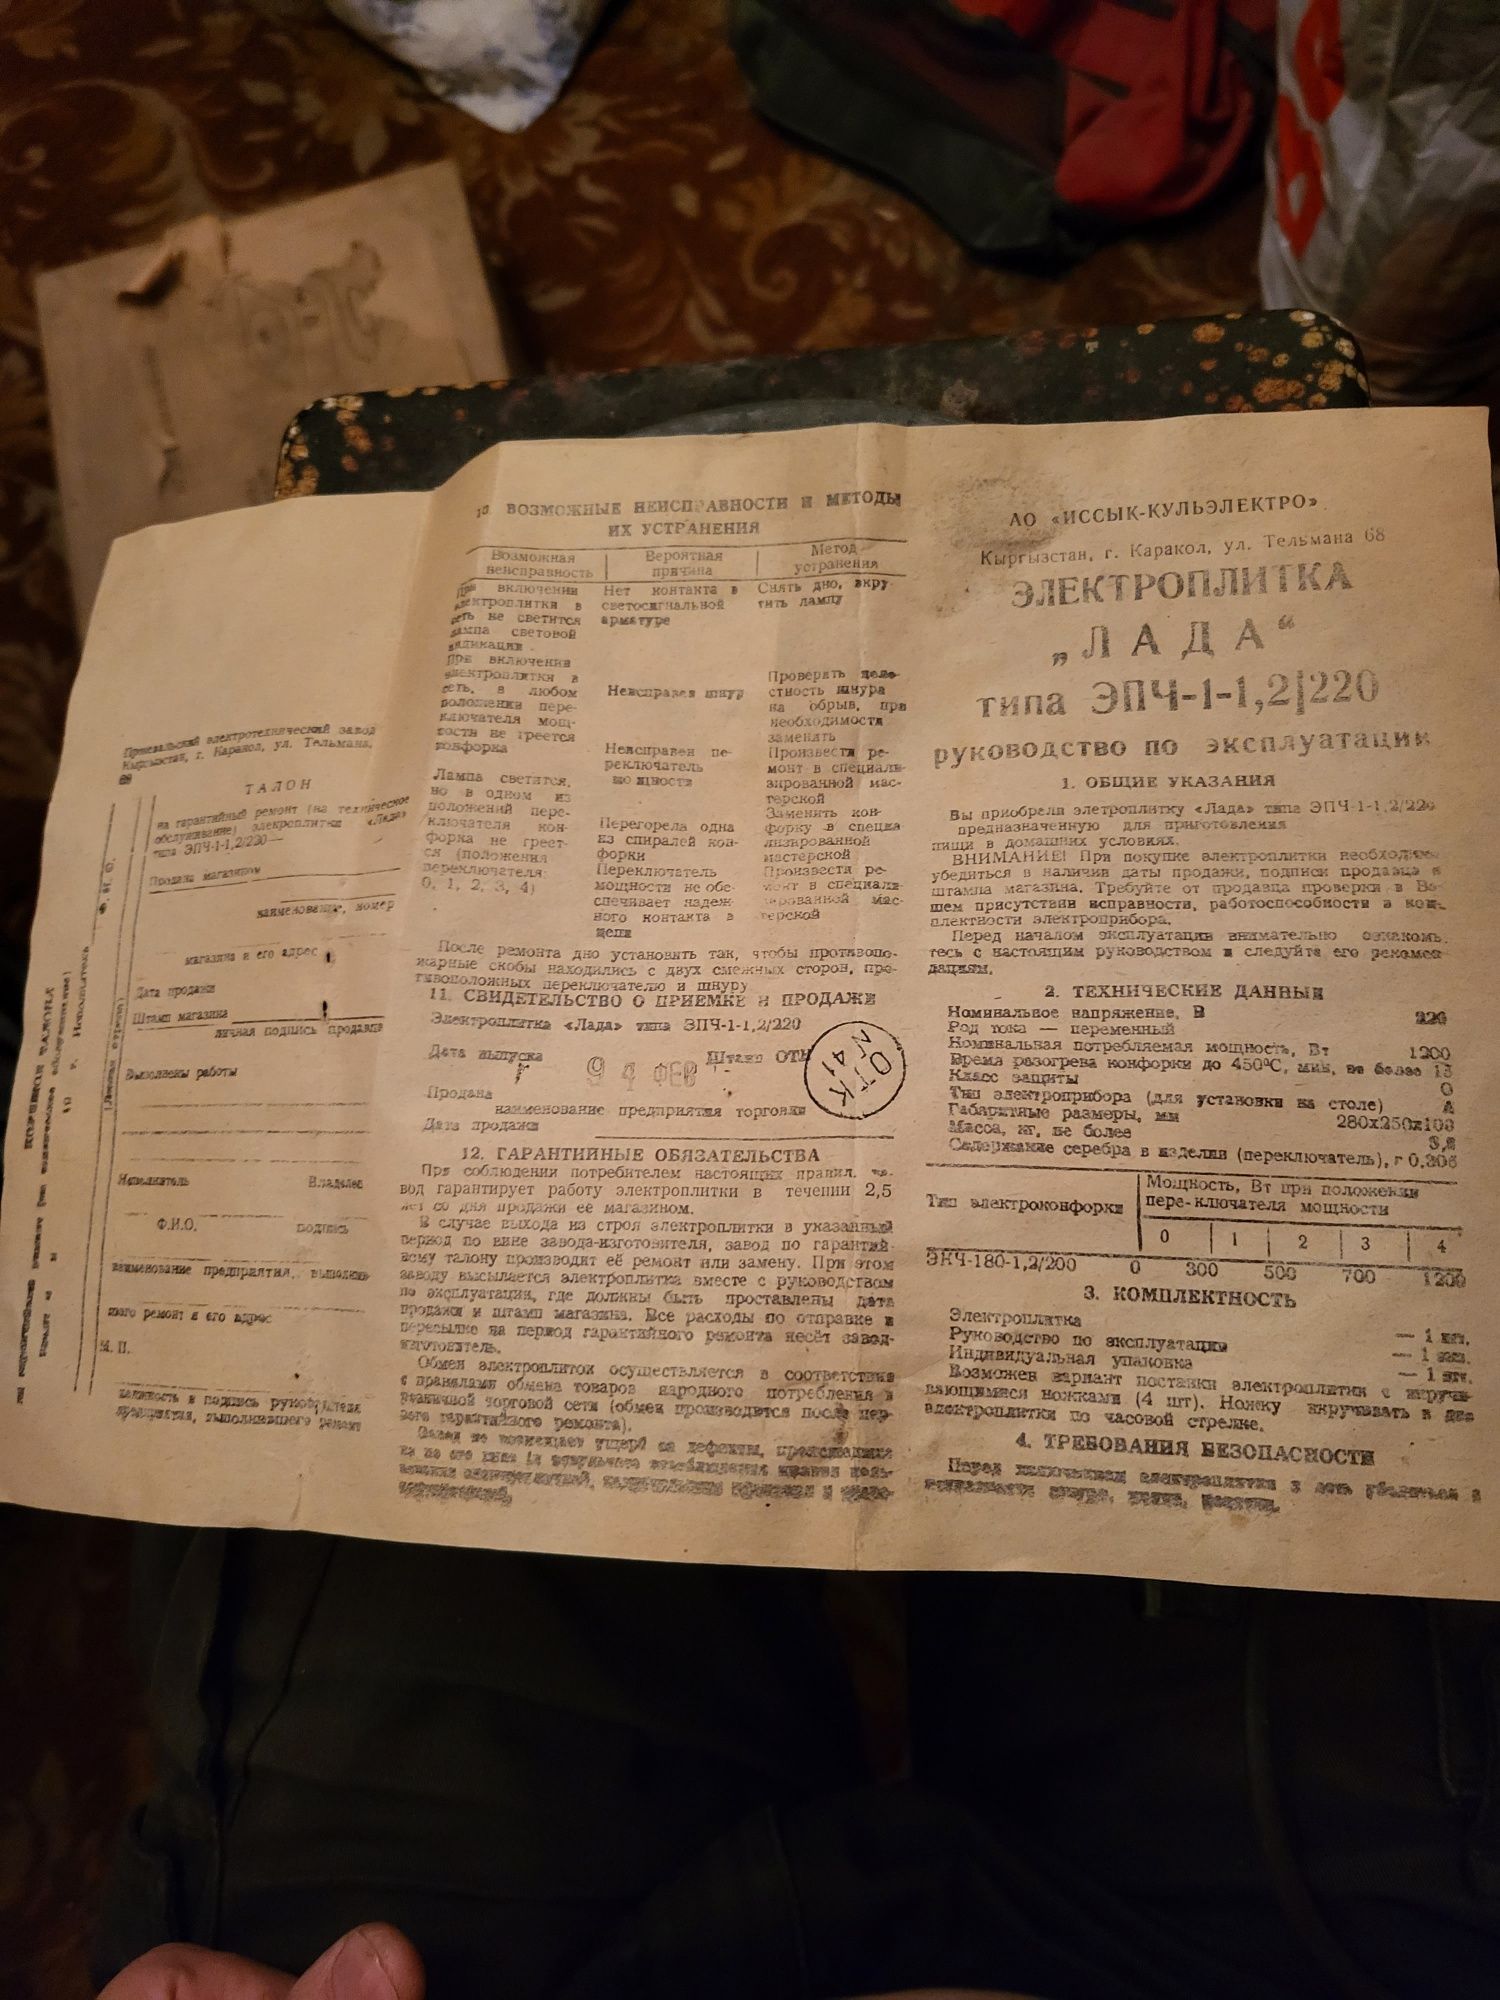 АО «ИССЫК-КУЛЬЭЛЕКТРО»
Кыргызстан, г. Каракол, ул. Тельмана 68
ЭЛЕКТРОПЛИТКА
„ЛАДА“
типа ЭПЧ-1-1,2|220
руководство по эксплуатации
1. ОБЩИЕ УКАЗАНИЯ
Вы приобрели элетроплитку «Лада» типа ЭПЧ-1-1,2/220
предназначенную для приготовления
пищи в домашних условиях.
ВНИМАНИЕ! При покупке электроплитки необходимо
убедиться в наличии даты продажи, подписи продавца и
штампа магазина. Требуйте от продавца проверки в Ва-
шем присутствии исправности, работоспособности и ком-
плектности электроприбора.
Перед началом эксплуатации внимательно ознакомь-
тесь с настоящим руководством и следуйте его рекомен-
дациям.
2. ТЕХНИЧЕСКИЕ ДАННЫЕ
Номинальное напряжение, В 220
Род тока — переменный
Номинальная потребляемая мощность, Вт 1200
Время разогрева конфорки до 450°С, мин, не более 15
Класс защиты 0
Тип электроприбора (для установки на столе) А
Габаритные размеры, мм 280х250х100
Масса, кг, не более
Содержание серебра в изделии (переключатель), г 0,306
Тип электроконфорки
Мощность, Вт при положении
пере-ключателя мощности
0 | 1 | 2 | 3 | 4
ЭКЧ-180-1,2/200 0 300 500 700 1200
3. КОМПЛЕКТНОСТЬ
Электроплитка — 1 шт.
Руководство по эксплуатации — 1 экз.
Индивидуальная упаковка — 1 шт.
Возможен вариант поставки электроплитки с вкручи-
вающимися ножками (4 шт). Ножку вкручивать в дно
электроплитки по часовой стрелке.
4. ТРЕБОВАНИЯ БЕЗОПАСНОСТИ
Перед включением электроплитки в сеть убедиться в
10. ВОЗМОЖНЫЕ НЕИСПРАВНОСТИ И МЕТОДЫ
ИХ УСТРАНЕНИЯ
Возможная неисправность | Вероятная причина | Метод устранения
При включении Нет контакта в Снять дно, вкру-
электроплитки в светосигнальной тить лампу
сеть не светится арматуре
лампа световой
индикации.
При включении
электроплитки в Проверить цело-
сеть, в любом Неисправен шнур стность шнура
положении пере- на обрыв, при
ключателя мощ- необходимости
ности не греется заменить
конфорка Неисправен пе- Произвести ре-
реключатель монт в специали-
Лампа светится, мощности зированной мас-
но в одном из терской
положений пере- Заменить кон-
ключателя кон- Перегорела одна форку в специа
форка не греет- из спиралей кон- лизированной
ся (положения форки мастерской
переключателя: Переключатель Произвести ре-
0, 1, 2, 3, 4) мощности не обе- монт в специали-
спечивает надеж- зированной мас-
ного контакта в терской
цепи
После ремонта дно установить так, чтобы противопо-
жарные скобы находились с двух смежных сторон, про-
тивоположных переключателю и шнуру
11. СВИДЕТЕЛЬСТВО О ПРИЕМКЕ И ПРОДАЖЕ
Электроплитка «Лада» типа ЭПЧ-1-1,2/220
Дата выпуска Штамп ОТК
г 94 ФЕВ
ОТК
N 41
Продана
наименование предприятия торговли
Дата продажи
12. ГАРАНТИЙНЫЕ ОБЯЗАТЕЛЬСТВА
При соблюдении потребителем настоящих правил, за-
вод гарантирует работу электроплитки в течении 2,5
лет со дня продажи её магазином.
В случае выхода из строя электроплитки в указанный
период по вине завода-изготовителя, завод по гарантий-
ному талону производит её ремонт или замену. При этом
заводу высылается электроплитка вместе с руководством
по эксплуатации, где должны быть проставлены дата
продажи и штамп магазина. Все расходы по отправке и
пересылке на период гарантийного ремонта несёт завод-
изготовитель.
Обмен электроплиток осуществляется в соответствии
с правилами обмена товаров народного потребления в
розничной торговой сети (обмен производится после пер-
вого гарантийного ремонта).
Завод не возмещает ущерб за дефекты,
Пржевальский электротехнический завод
Кыргызстан, г. Каракол, ул. Тельмана,
68
ТАЛОН
на гарантийный ремонт (на техническое
обслуживание) электроплитки «Лада»
типа ЭПЧ-1-1,2/220
Продана магазином
наименование, номер
магазина и его адрес
Дата продажи
Штамп магазина
личная подпись продавца
Выполнены работы
Исполнитель Владелец
Ф.И.О. подпись
наименование предприятия, выполнив-
шего ремонт и его адрес
М. П.
должность и подпись руководителя
предприятия, выполнившего ремонт
КОРЕШОК ТАЛОНА
Исполнитель
Ф. И. О.